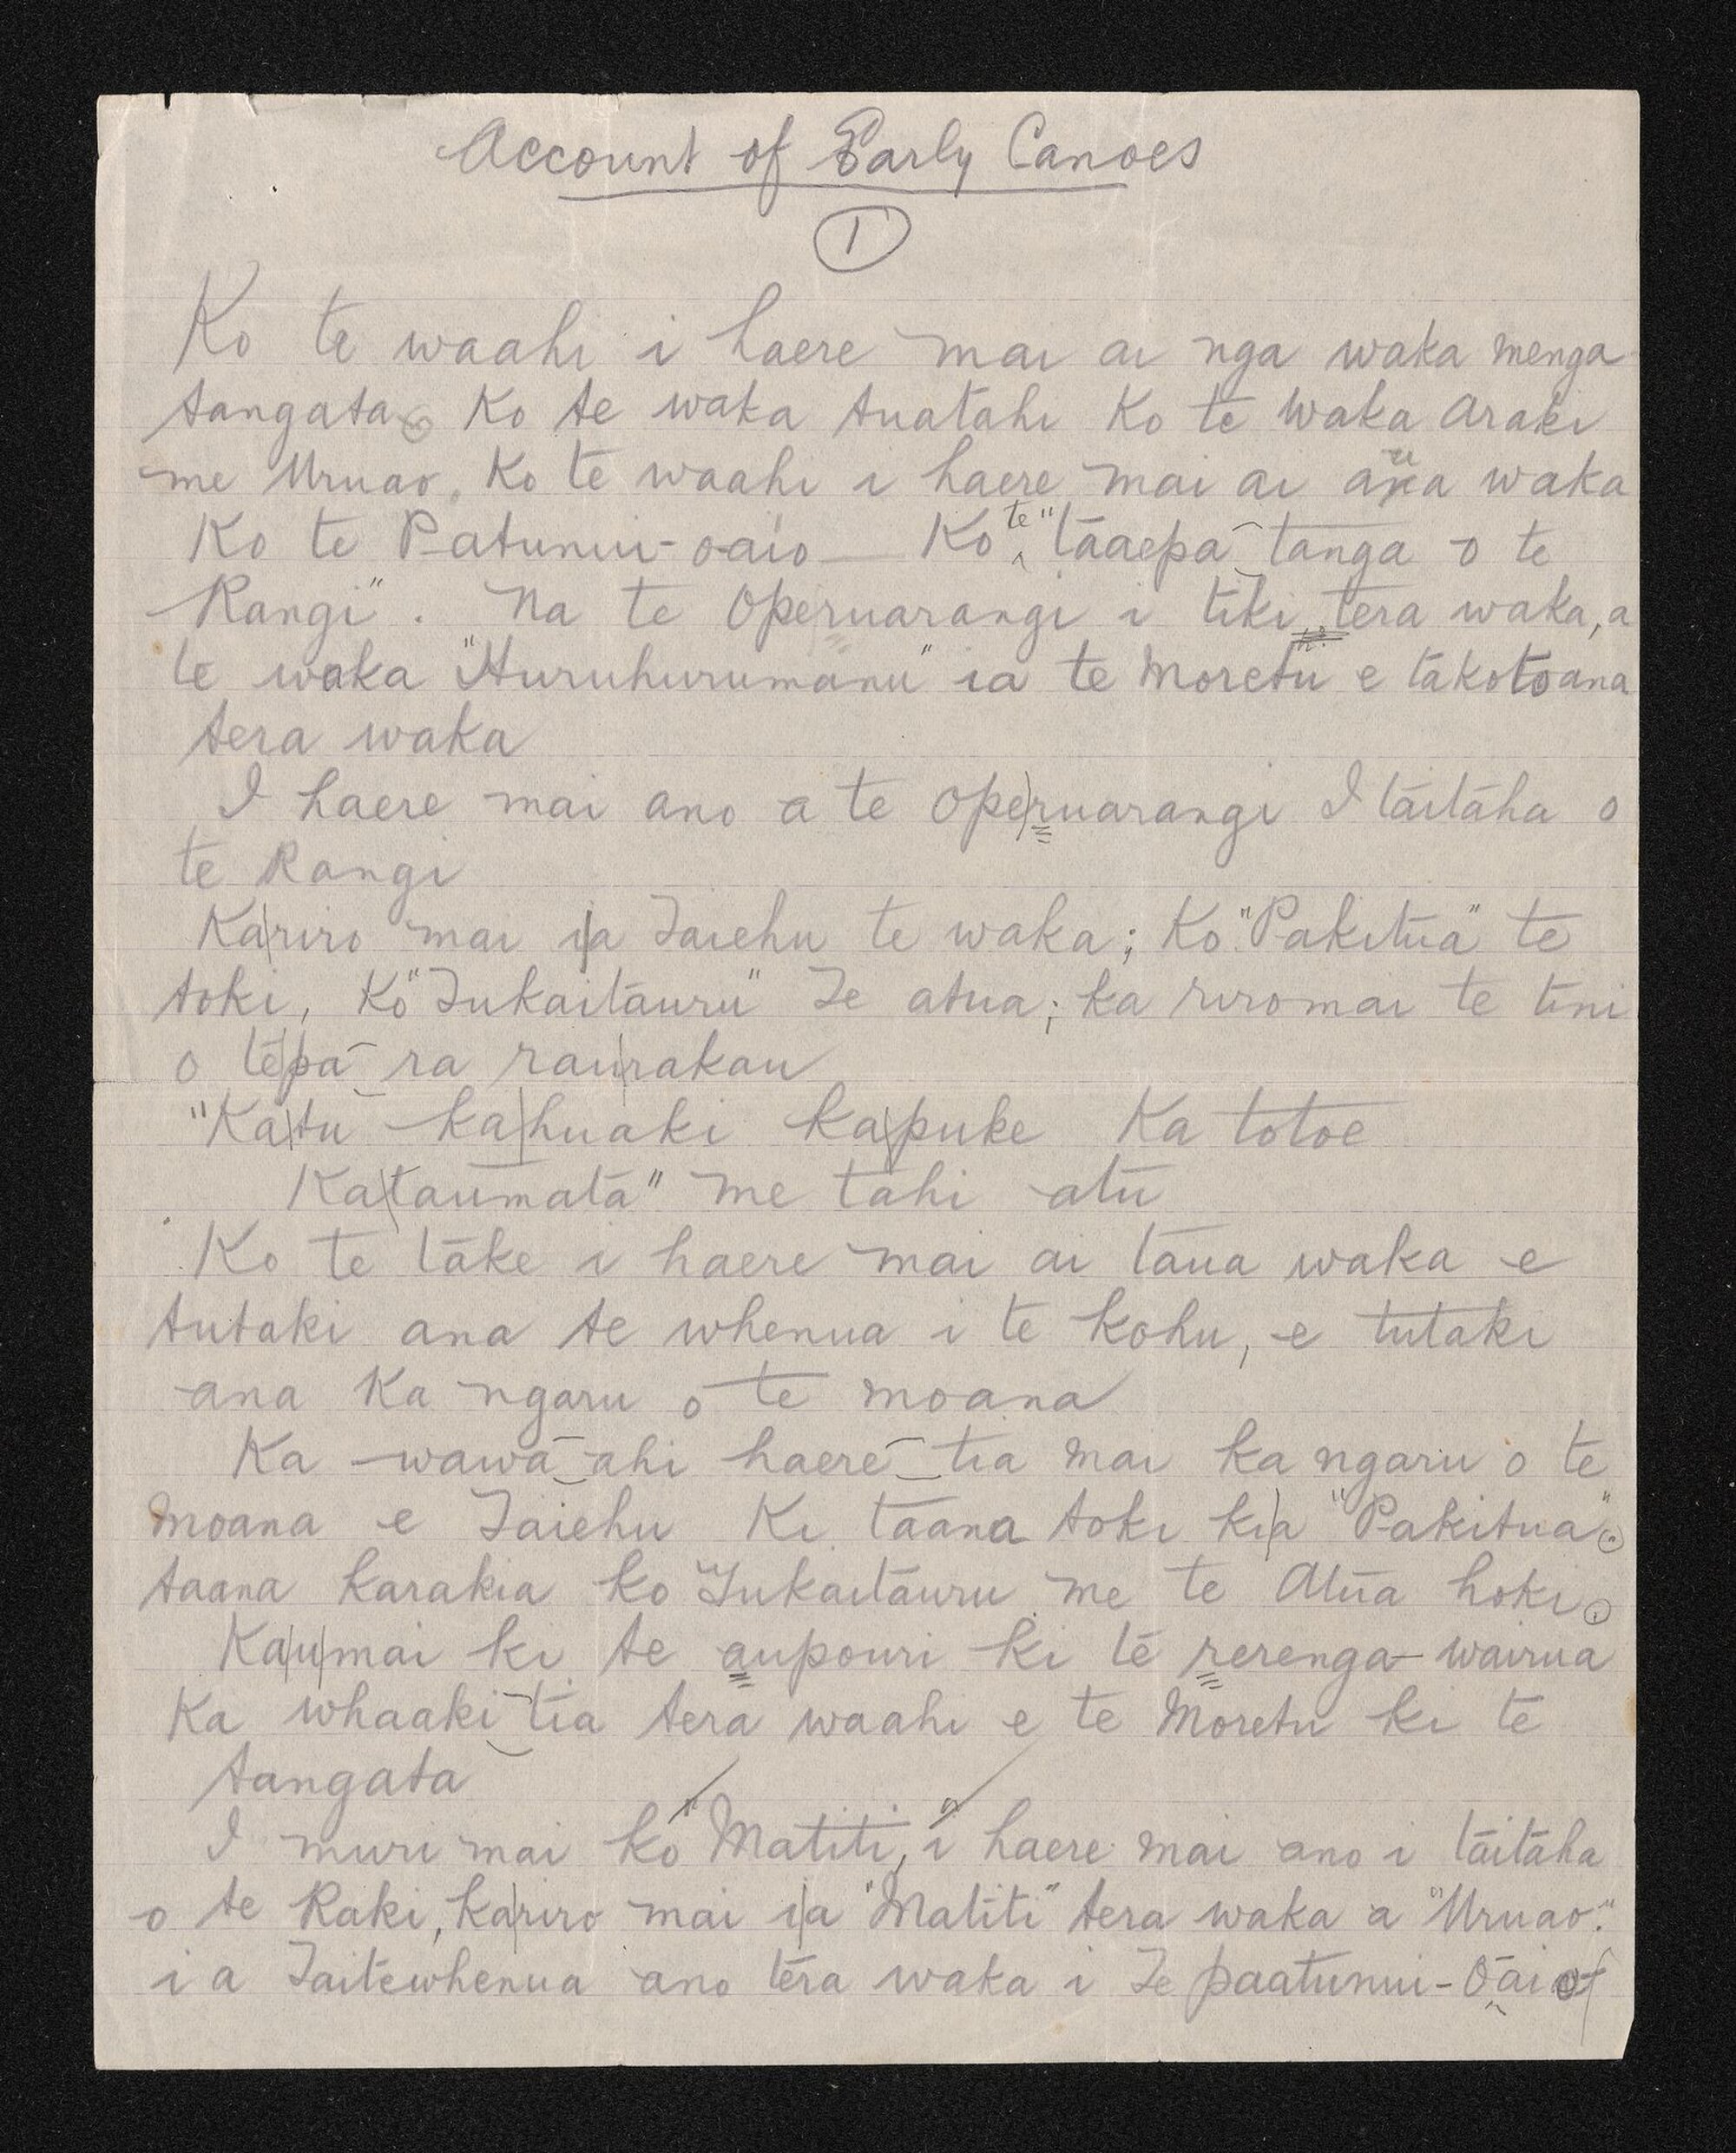 Account of Early Canoes
1
Ko te waahi i haere mai ai nga waka menga
tangata. Ko te waka tuatahi Ko te waka Araki
me Uruao. Ko te waahi i haere mai ai aua waka
Ko te Patunui-o-aio — Ko te "taaepa tanga o te
Rangi". Na te Operuarangi i tiki tera waka, a
te waka "Huruhurumanu" ia te Moretu e takotoana
tera waka
I haere mai ano a te Operuarangi I taitaha o
te Rangi
Kariro mai ia Taiehu te waka; Ko "Pakitua" te
toki, Ko "Tukaitauru" Te atua; ka riromai te tini
o tepa ra raurakau
"Katu kahuaki kapuke Ka totoe
Kataumata" me tahi atu
Ko te take i haere mai ai taua waka e
tutaki ana te whenua i te kohu, e tutaki
ana Ka ngaru o te moana
Ka wawa-ahi haere-tia mai ka ngaru o te
moana e Taiehu Ki taana toki kia "Pakitua".
taana karakia ko Tukaitauru me te Atua hoki.
Kaumai ki te aupouri ki te rerenga-wairua
Ka whaaki tia tera waahi e te Moretu ki te
tangata
I muri mai ko "Matiti", i haere mai ano i taitaha
o te Raki, kariro mai ia "Matiti" tera waka a "Uruao".
i a Taitewhenua ano tera waka i Te paatunui-O-aio